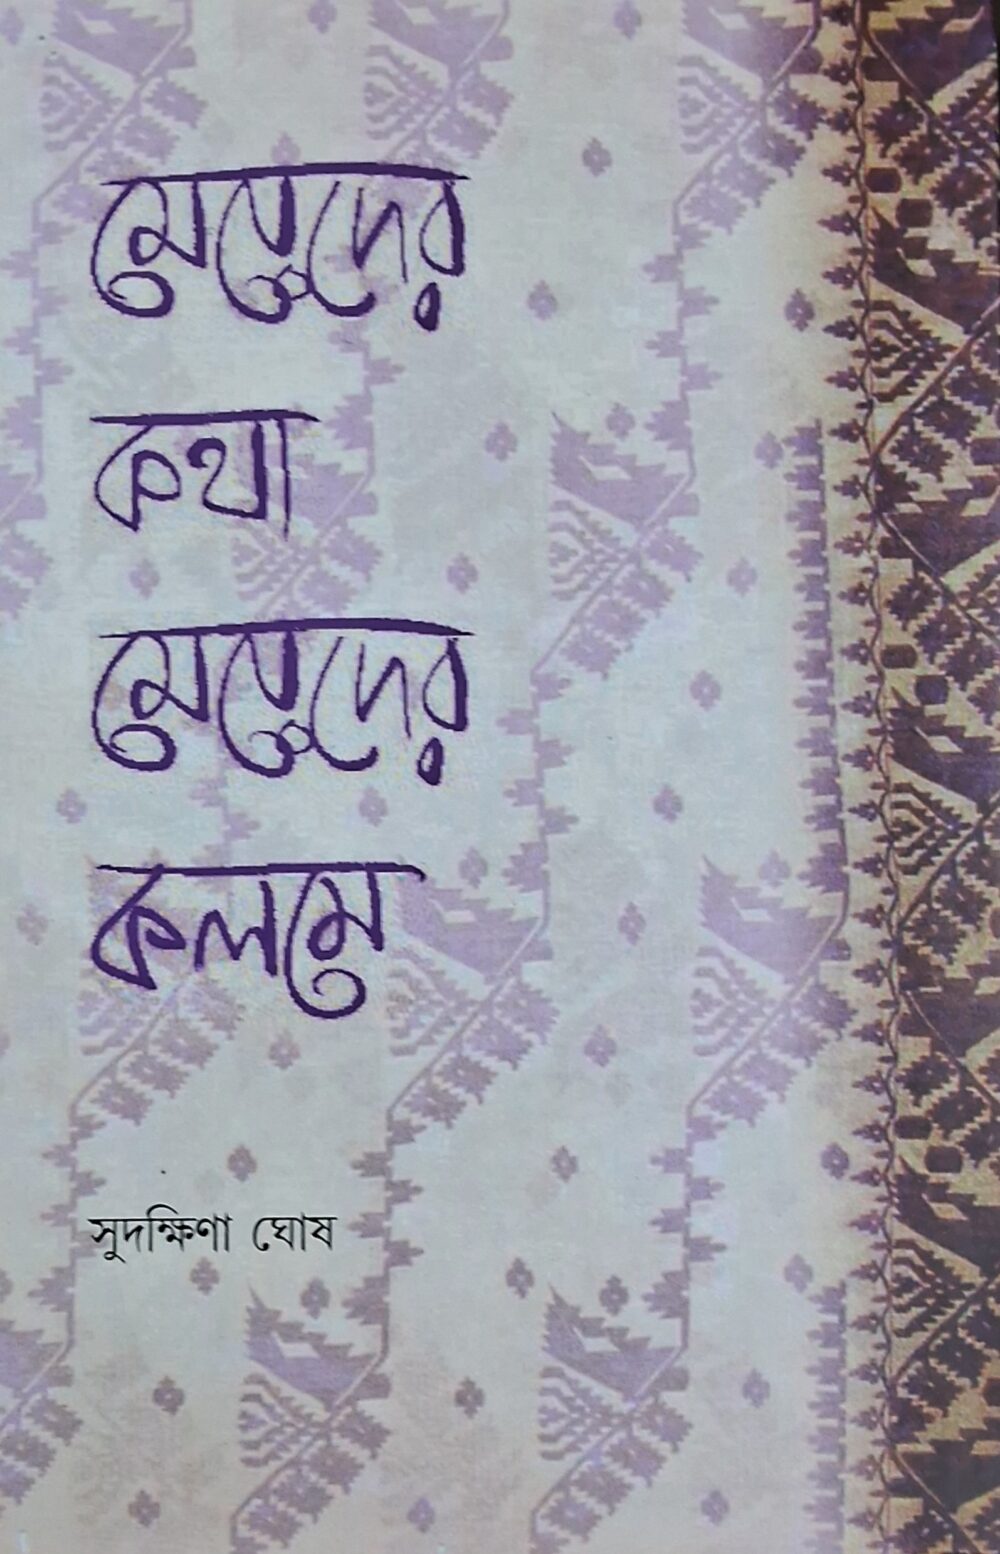 মেয়েদের
কথা
মেয়েদের
কলমে
সুদক্ষিণা ঘোষ